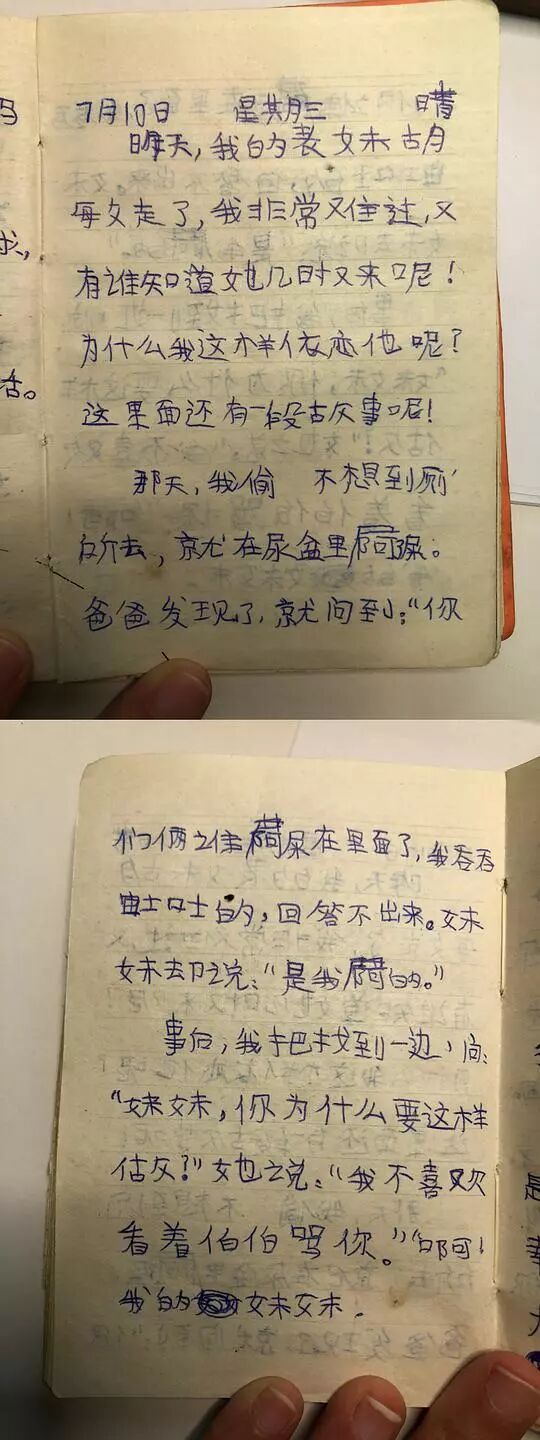 7月10日 星期三 晴
昨天，我的表妹胡
每文走了，我非常又住过，又
有谁知道她几时又来呢！
为什么我这样依恋他呢？
这里面还有一段故事呢！
那天，我偷 不想到厕
所去，就在尿盆里屙尿。
爸爸发现了，就问到：“你
们俩谁屙尿在里面了，我吞吞
吐吐的，回答不出来。妹
妹却说：“是我屙的。”
事后，我把找到一边，问：
“妹妹，你为什么要这样
做？”她说：“我不喜欢
看着伯伯骂你。”“啊！
我的妹妹。